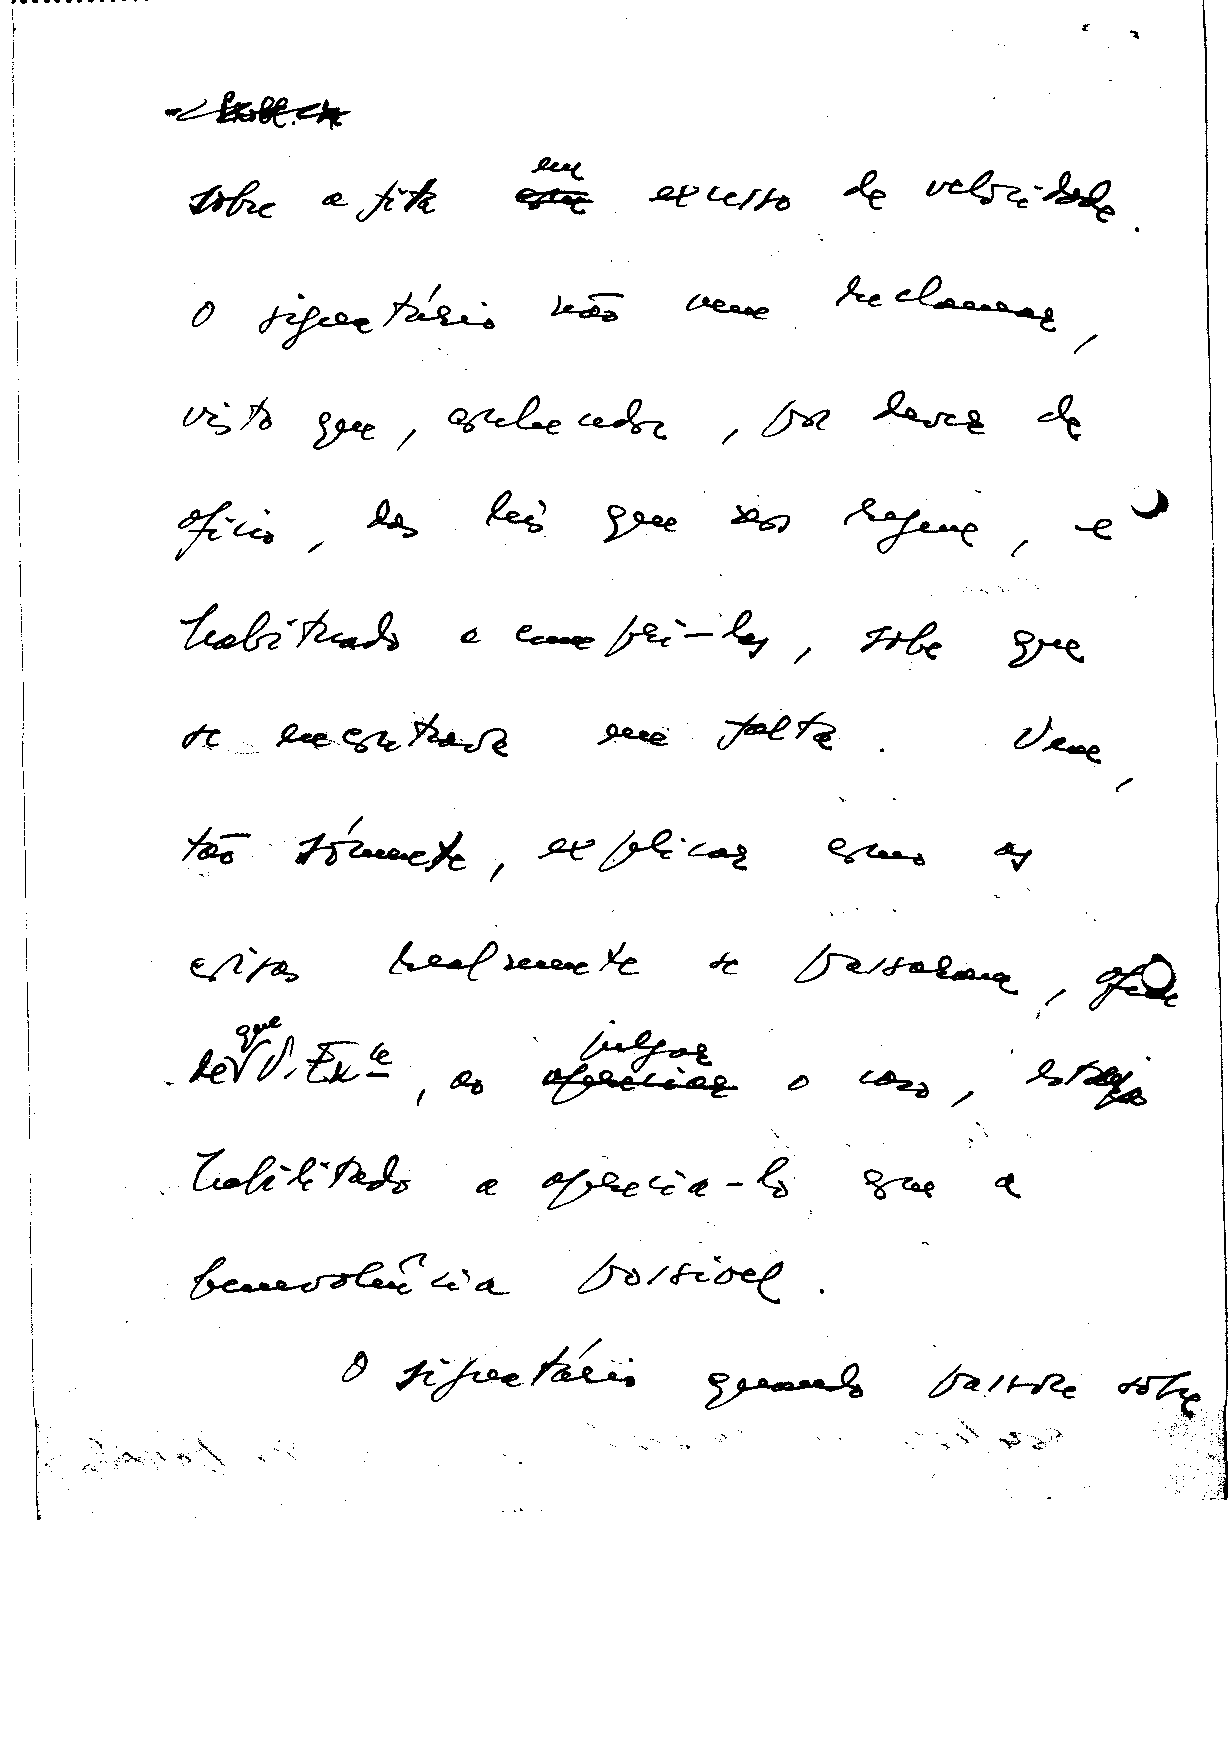 sobre a fita em excesso de velocidade.
O signatário não vem reclamar,
visto que, conhecedor, por dever de
ofício, das leis que nos regem, e
habituado a cumpri-las, sabe que
se encontrava em falta. Vem,
tão sómente, explicar como as
coisas realmente se passaram, afim
de que V. Exª, ao julgar o caso, esteja
habilitado a aprecia-lo que a
benevolência possivel.
O signatário quando passou sobre